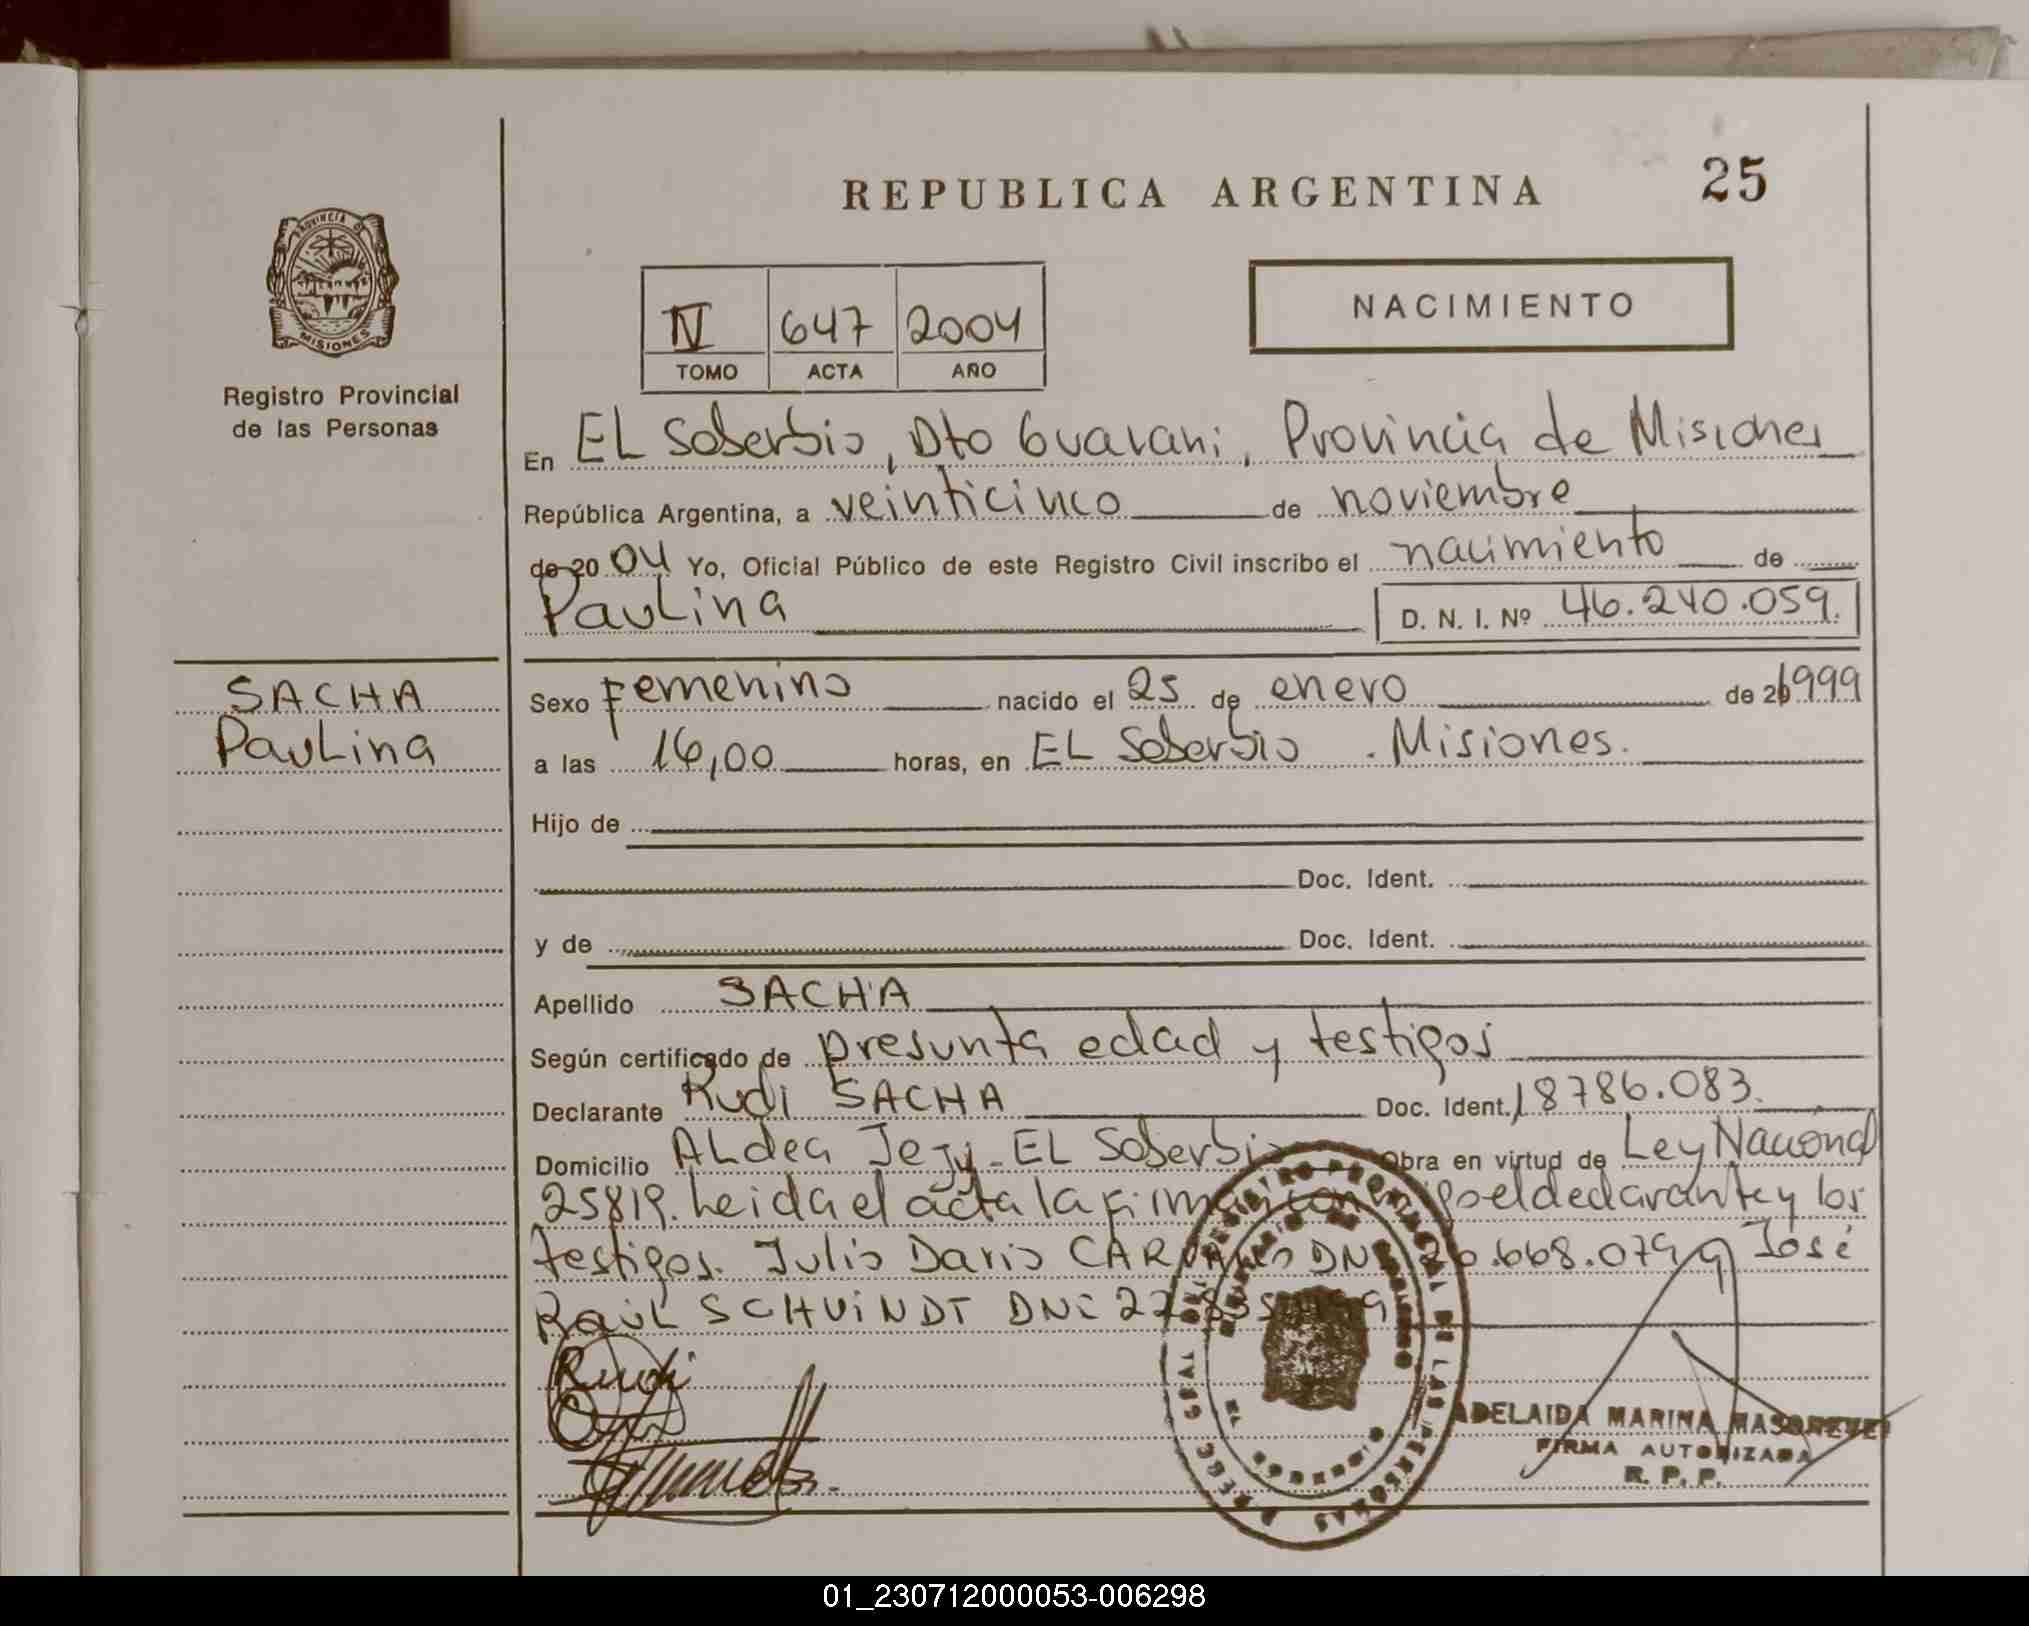 REPUBLICA ARGENTINA
25
PROVINCIA DE
MISIONES
Registro Provincial
de las Personas
IV 647 2004
TOMO ACTA AÑO
NACIMIENTO
En EL Soberbio, Dto Guarani, Provincia de Misiones
República Argentina, a veinticinco de noviembre
de 2004 Yo, Oficial Público de este Registro Civil inscribo el nacimiento de
Paulina
D. N. I. Nº 46.240.059.
SACHA
Paulina
Sexo Femenino nacido el 25 de enero de 1999
a las 16,00 horas, en EL Soberbio . Misiones.
Hijo de
Doc. Ident.
y de Doc. Ident.
Apellido SACHA
Según certificado de presunta edad y testigos
Declarante Rudi SACHA Doc. Ident. 18786.083.
Domicilio ALdea Jejy - EL Soberbio Obra en virtud de Ley Nacional
25819. Leida el acta la firman el declarante y los
testigos. Julio Dario DNI .668.079 José
Raúl SCHUINDT DNi 27
Rudi
REGISTRO PROVINCIAL DE LAS PERSONAS
ADELAIDA MARINA
FIRMA AUTORIZADA
R. P. P.
01_230712000053-006298